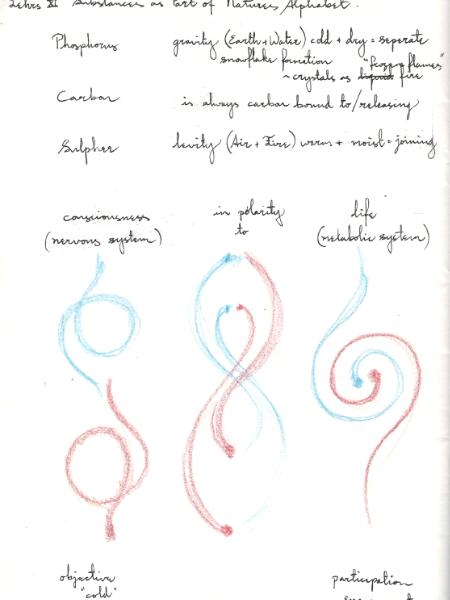 Lehrs XI Substances as Part of Natures Alphabet.
Phosphorus gravity (Earth+Water) cold + dry = seperate
snowflake formation "frosp + flames"
~ crystals as liquid fire
Carbon is always carbon bound to/releasing
Sulpher levity (Air + Fire) warm + moist = joining
consciousness in polarity life
(nervous system) to (metabolic system)
objective participation
"cold"